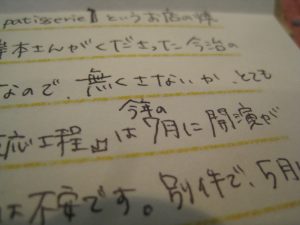 patisserie』というお店の
岸本さんがくださった今治の
なので、無くさないか、とても
応工程』は今年の7月に開演が
は不安です。別件で、5月